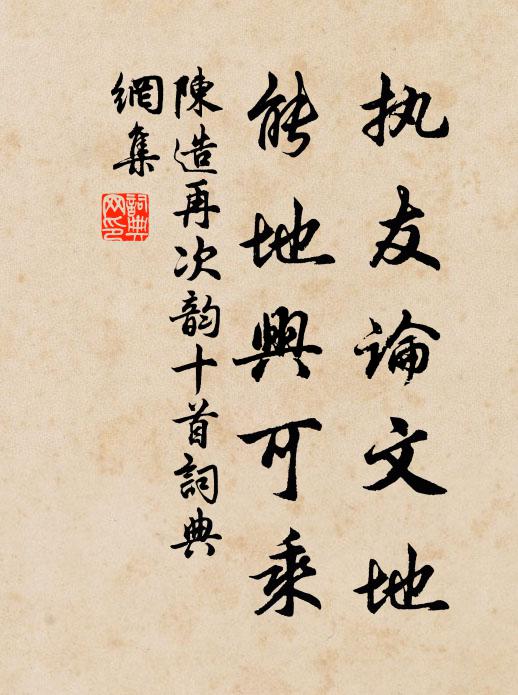 执友論文地
能地興可乘
陳造再次韵十首詞典
網集
詞典網印